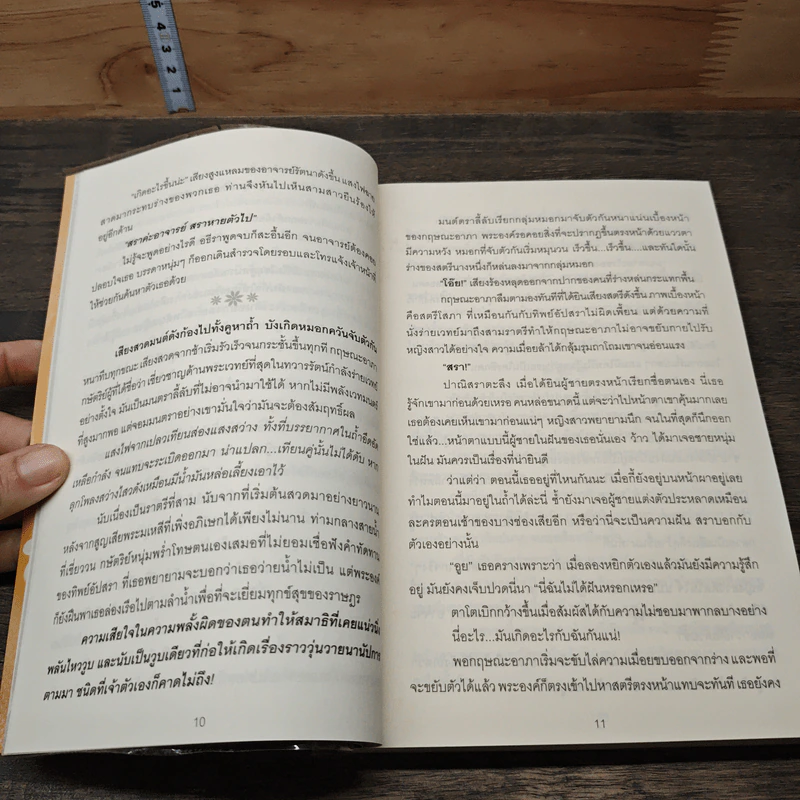 5 4 3 2 1
"เกิดอะไรขึ้นน่ะ" เสียงสูงแหลมของอาจารย์รัตนาดังขึ้น แสงไฟฉาย
สาดมากระทบร่างของพวกเธอ ท่านจึงหันไปเห็นสามสาวยืนร้องไห้
อยู่อีกด้าน
"สราค่ะอาจารย์ สราหายตัวไป"
ไม่รู้จะพูดอย่างไรดี อธีราพูดจบก็สะอื้นอีก จนอาจารย์ต้องคอย
ปลอบใจเธอ บรรดาหนุ่มๆ ก็ออกเดินสำรวจโดยรอบและโทรแจ้งเจ้าหน้าที่
ให้ช่วยกันค้นหาตัวเธอด้วย
เสียงสวดมนต์ดังก้องไปทั้งคูหาถ้ำ บังเกิดหมอกควันจับตัวกัน
หนาทึบทุกขณะ เสียงสวดจากช้าเริ่มรัวเร็วจนกระชั้นขึ้นทุกที กฤษณะอาภา
กษัตริย์ผู้ที่ได้ชื่อว่า เชี่ยวชาญด้านพระเวทย์ที่สุดในทวารรัตน์กำลังร่ายเวทย์
อย่างตั้งใจ มันเป็นมนตราลี้ลับที่ไม่อาจนำมาใช้ได้ หากไม่มีพลังเวทมนตร์
ที่สูงมากพอ แต่จอมมนตราอย่างเขามั่นใจว่ามันจะต้องสัมฤทธิ์ผล
แสงไฟจากเปลวเทียนส่องแสงสว่าง ทั้งที่บรรยากาศในถ้ำอึดอัด
เหลือกำลัง จนแทบจะระเบิดออกมา น่าแปลก...เทียนคู่นั้นไม่ได้ดับ หาก
ลุกโพลงสว่างไสวดังเหมือนมีน้ำมันหล่อเลี้ยงเอาไว้
นับเนื่องเป็นราตรีที่สาม นับจากที่เริ่มต้นสวดมาอย่างยาวนาน
หลังจากสูญเสียพระมเหสีที่เพิ่งอภิเษกได้เพียงไม่นาน ท่ามกลางสายน้ำ
ที่เชี่ยววน กษัตริย์หนุ่มพร่ำโทษตนเองเสมอที่ไม่ยอมเชื่อฟังคำทัดทาน
ของทิพย์อัปสรา ที่เธอพยายามจะบอกว่าเธอว่ายน้ำไม่เป็น แต่พระองค์
ก็ยังฝืนพาเธอล่องเรือไปตามลำน้ำเพื่อที่จะเยี่ยมทุกข์สุขของราษฎร
ความเสียใจในความพลั้งผิดของตนทำให้สมาธิที่เคยแน่วนิ่ง
พลันไหววูบ และนับเป็นวูบเดียวที่ก่อให้เกิดเรื่องราววุ่นวายนานัปการ
ตามมา ชนิดที่เจ้าตัวเองก็คาดไม่ถึง!
10
มนต์ตราลี้ลับเรียกกลุ่มหมอกมาจับตัวกันหนาแน่นเบื้องหน้า
ของกฤษณะอาภา พระองค์รอคอยสิ่งที่จะปรากฏขึ้นตรงหน้าด้วยแววตา
มีความหวัง หมอกที่จับตัวกันเริ่มหมุนวน เร็วขึ้น...เร็วขึ้น....และทันใดนั้น
ร่างของสตรีนางหนึ่งก็หล่นลงมาจากกลุ่มหมอก
"โอ๊ย!" เสียงร้องหลุดออกจากปากของคนที่ร่างหล่นกระแทกพื้น
กฤษณะอาภาลืมตามองทันทีที่ได้ยินเสียงสตรีดังขึ้น ภาพเบื้องหน้า
คือสตรีโสภา ที่เหมือนกันกับทิพย์อัปสราไม่ผิดเพี้ยน แต่ด้วยความที่
นั่งร่ายเวทย์มาถึงสามราตรีทำให้กฤษณะอาภาไม่อาจขยับกายไปรับ
หญิงสาวได้อย่างใจ ความเมื่อยล้าได้กลุ้มรุมถาโถมเขาจนอ่อนแรง
"สรา!"
ปาณิสราตะลึง เมื่อได้ยินผู้ชายตรงหน้าเรียกชื่อตนเอง นี่เธอ
รู้จักเขามาก่อนด้วยเหรอ คนหล่อขนาดนี้ แต่จะว่าไปหน้าตาเขาคุ้นมากเลย
เธอต้องเคยเห็นเขามาก่อนแน่ๆ หญิงสาวพยายามนึก จนในที่สุดก็นึกออก
ใช่แล้ว...หน้าตาแบบนี้ผู้ชายในฝันของเธอนั่นเอง ว้าว ได้มาเจอชายหนุ่ม
ในฝัน มันควรเป็นเรื่องที่น่ายินดี
ว่าแต่ว่า ตอนนี้เธออยู่ที่ไหนกันนะ เมื่อกี้ยังอยู่บนหน้าผาอยู่เลย
ทำไมตอนนี้มาอยู่ในถ้ำได้ล่ะนี่ ซ้ำยังมาเจอผู้ชายแต่งตัวประหลาดเหมือน
ละครตอนเช้าของบางช่องเสียอีก หรือว่านี่จะเป็นความฝัน สราบอกกับ
ตัวเองอย่างนั้น
"อูย" เธอครางเพราะว่า เมื่อลองหยิกตัวเองแล้วมันยังมีความรู้สึก
อยู่ มันยังคงเจ็บปวดนี่นา "นี่ฉันไม่ได้ฝันหรอกเหรอ"
ตาโตเบิกกว้างขึ้นเมื่อสัมผัสได้กับความไม่ชอบมาพากลบางอย่าง
นี่อะไร...มันเกิดอะไรกับฉันกันแน่!
พอกฤษณะอาภาเริ่มจะขับไล่ความเมื่อยขบออกจากร่าง และพอที่
จะขยับตัวได้แล้ว พระองค์ก็ตรงเข้าไปหาสตรีตรงหน้าแทบจะทันที เธอยังคง
11